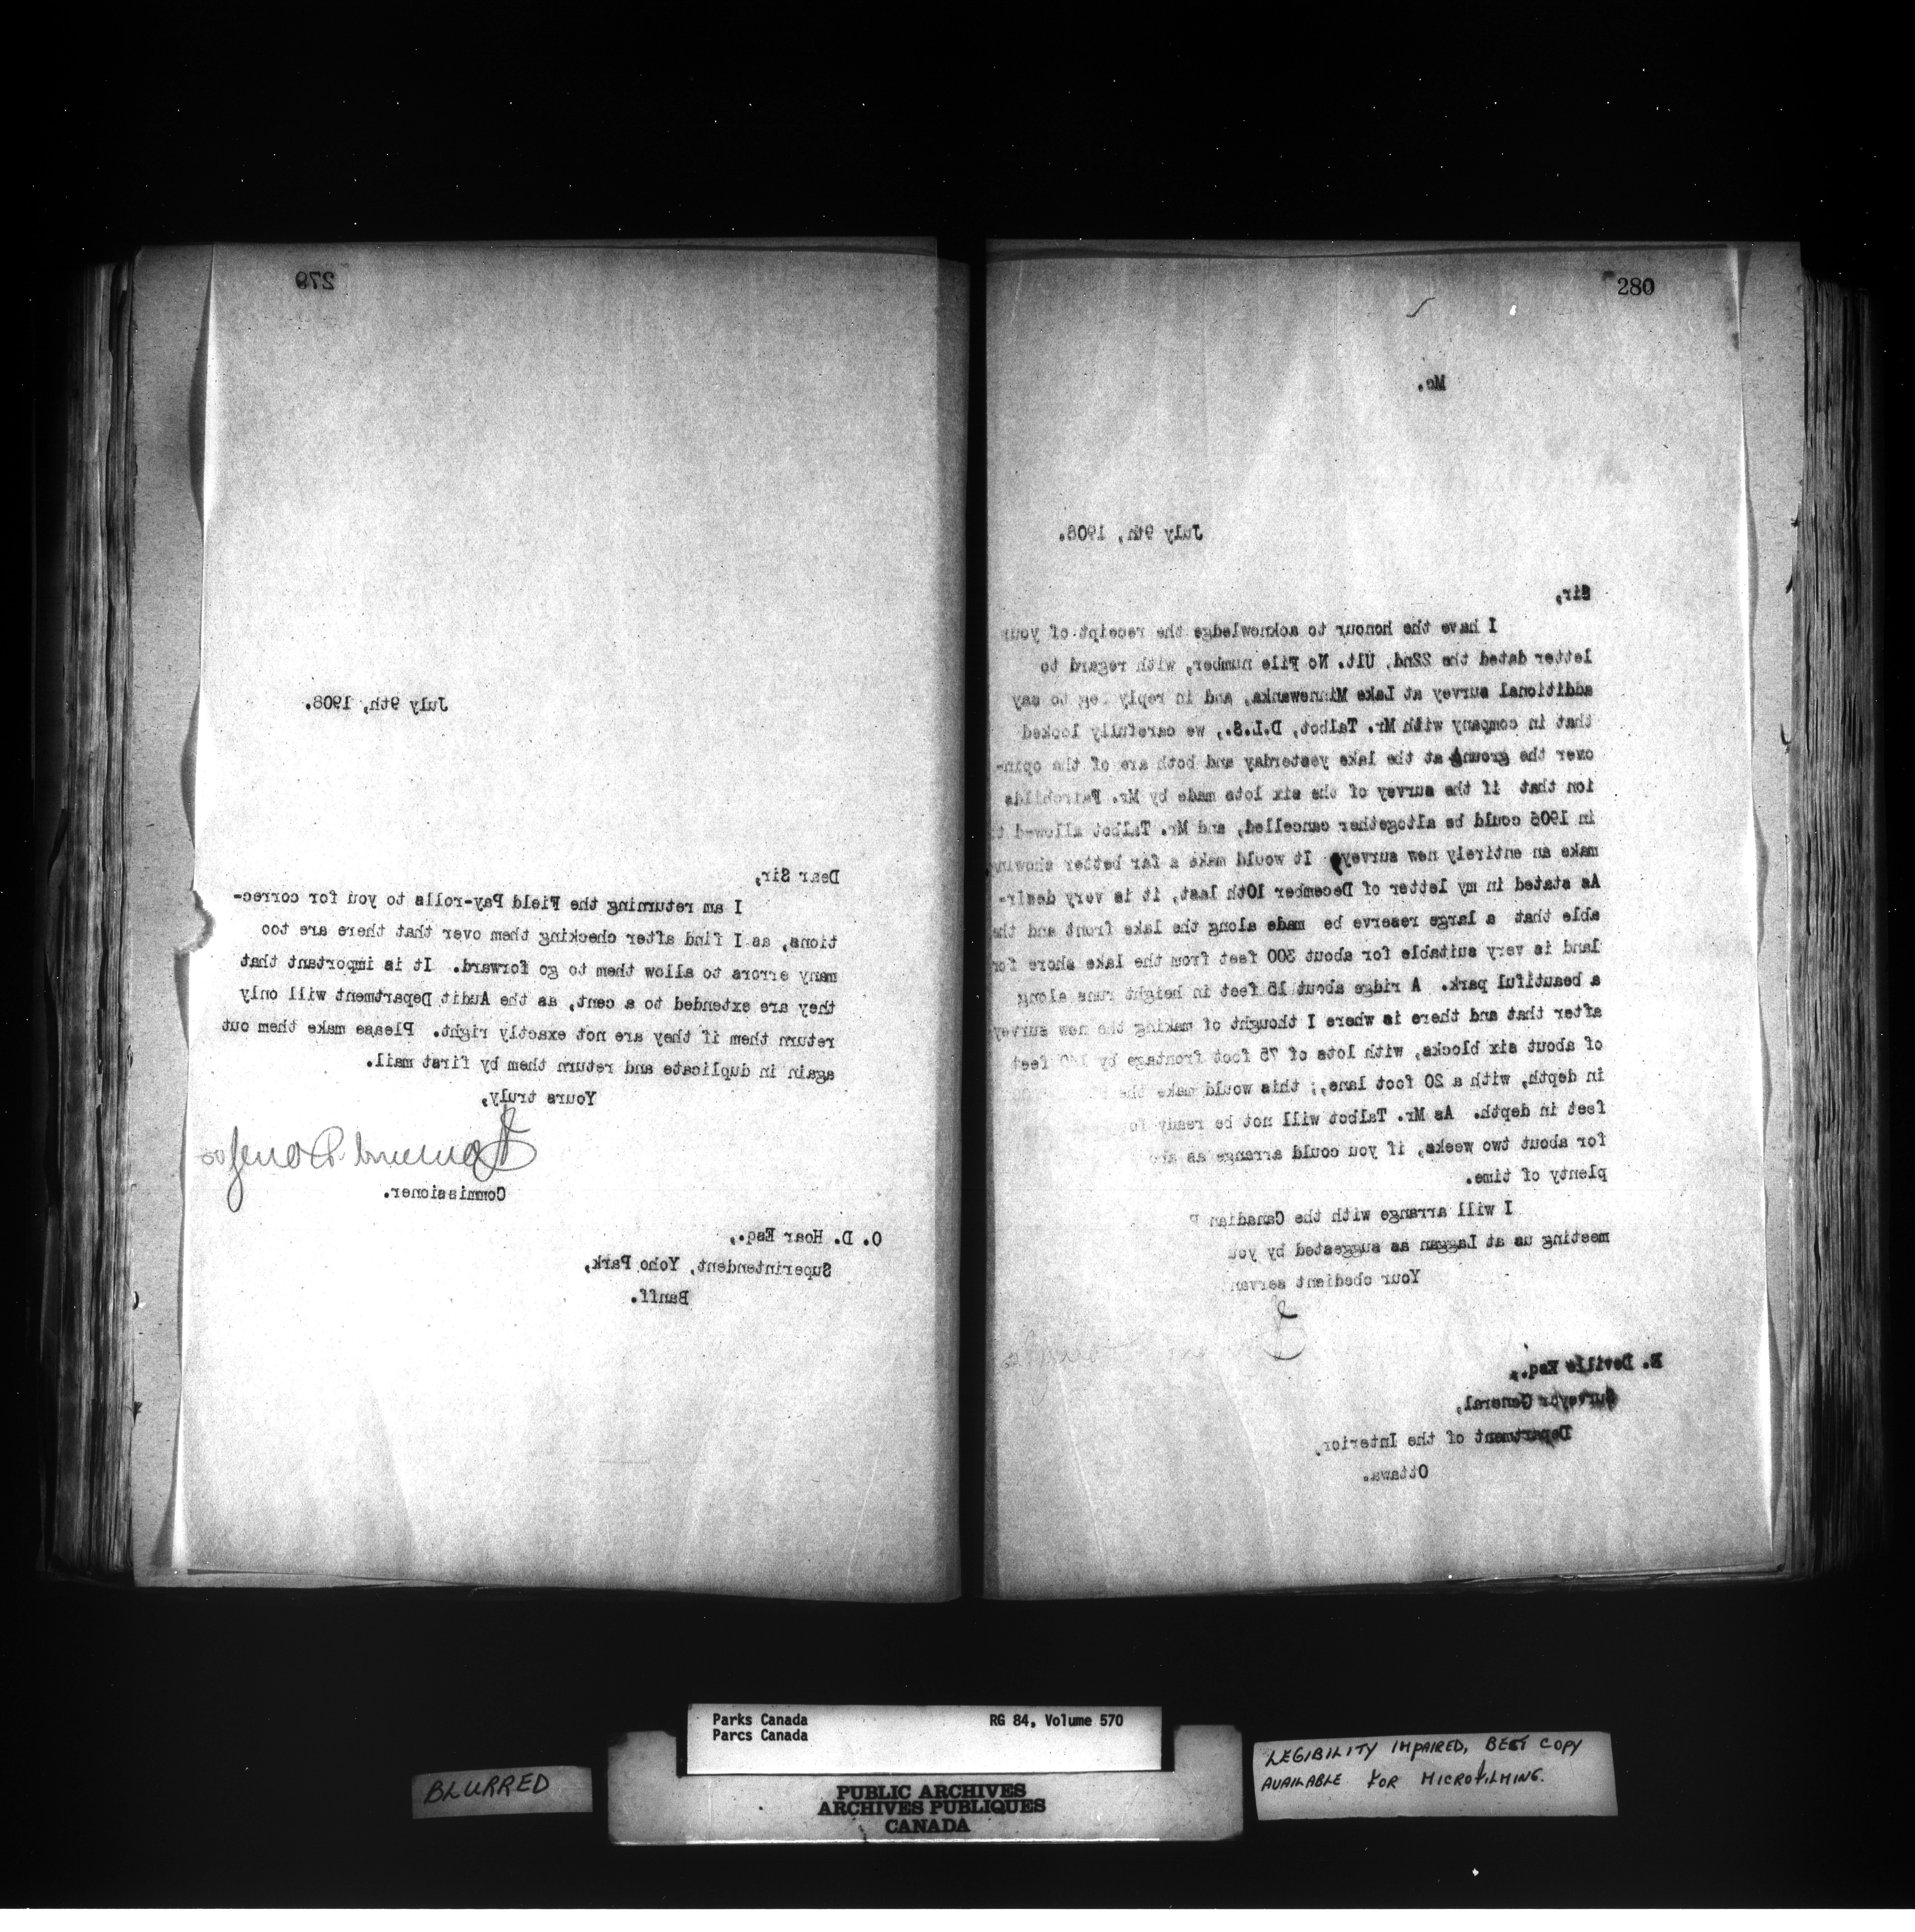 279
July 9th, 1908.
Dear Sir,
I am returning the Field Pay-rolls to you for correc-
tions, as I find after checking them over that there are too
many errors to allow them to go forward. It is important that
they are extended to a cent, as the Audit Department will only
return them if they are not exactly right. Please make them out
again in duplicate and return them by first mail.
Yours truly,
Commissioner.
O. D. Hoar Esq.,
Superintendent, Yoho Park,
Banff.
280
Mc.
July 9th, 1908.
Sir,
I have the honour to acknowledge the receipt of your
letter dated the 22nd, Ult. No File number, with regard to
additional survey at Lake Minnewanka, and in reply beg to say
that in company with Mr. Talbot, D.L.S., we carefully looked
over the ground at the lake yesterday and both are of the opin-
ion that if the survey of the six lots made by Mr. Fairchilds
in 1906 could be altogether cancelled, and Mr. Talbot allowed t
make an entirely new survey It would make a far better showing
As stated in my letter of December 10th last, it is very desir-
able that a large reserve be made along the lake front and the
land is very suitable for about 300 feet from the lake shore for
a beautiful park. A ridge about 15 feet in height runs along
after that and there is where I thought of making the new survey
of about six blocks, with lots of 75 foot frontage by 140 feet
in depth, with a 20 foot lane,; this would make the
feet in depth. As Mr. Talbot will not be ready
for about two weeks, if you could arrange as
plenty of time.
I will arrange with the Canadian P
meeting us at Laggan as suggested by you
Your obedient servan
E. Deville Esq.,
Surveyor General,
Department of the Interior,
Ottawa.
BLURRED
Parks Canada RG 84, Volume 570
Parcs Canada
PUBLIC ARCHIVES
ARCHIVES PUBLIQUES
CANADA
LEGIBILITY IMPAIRED, BEST COPY
AVAILABLE FOR MICROFILMING.